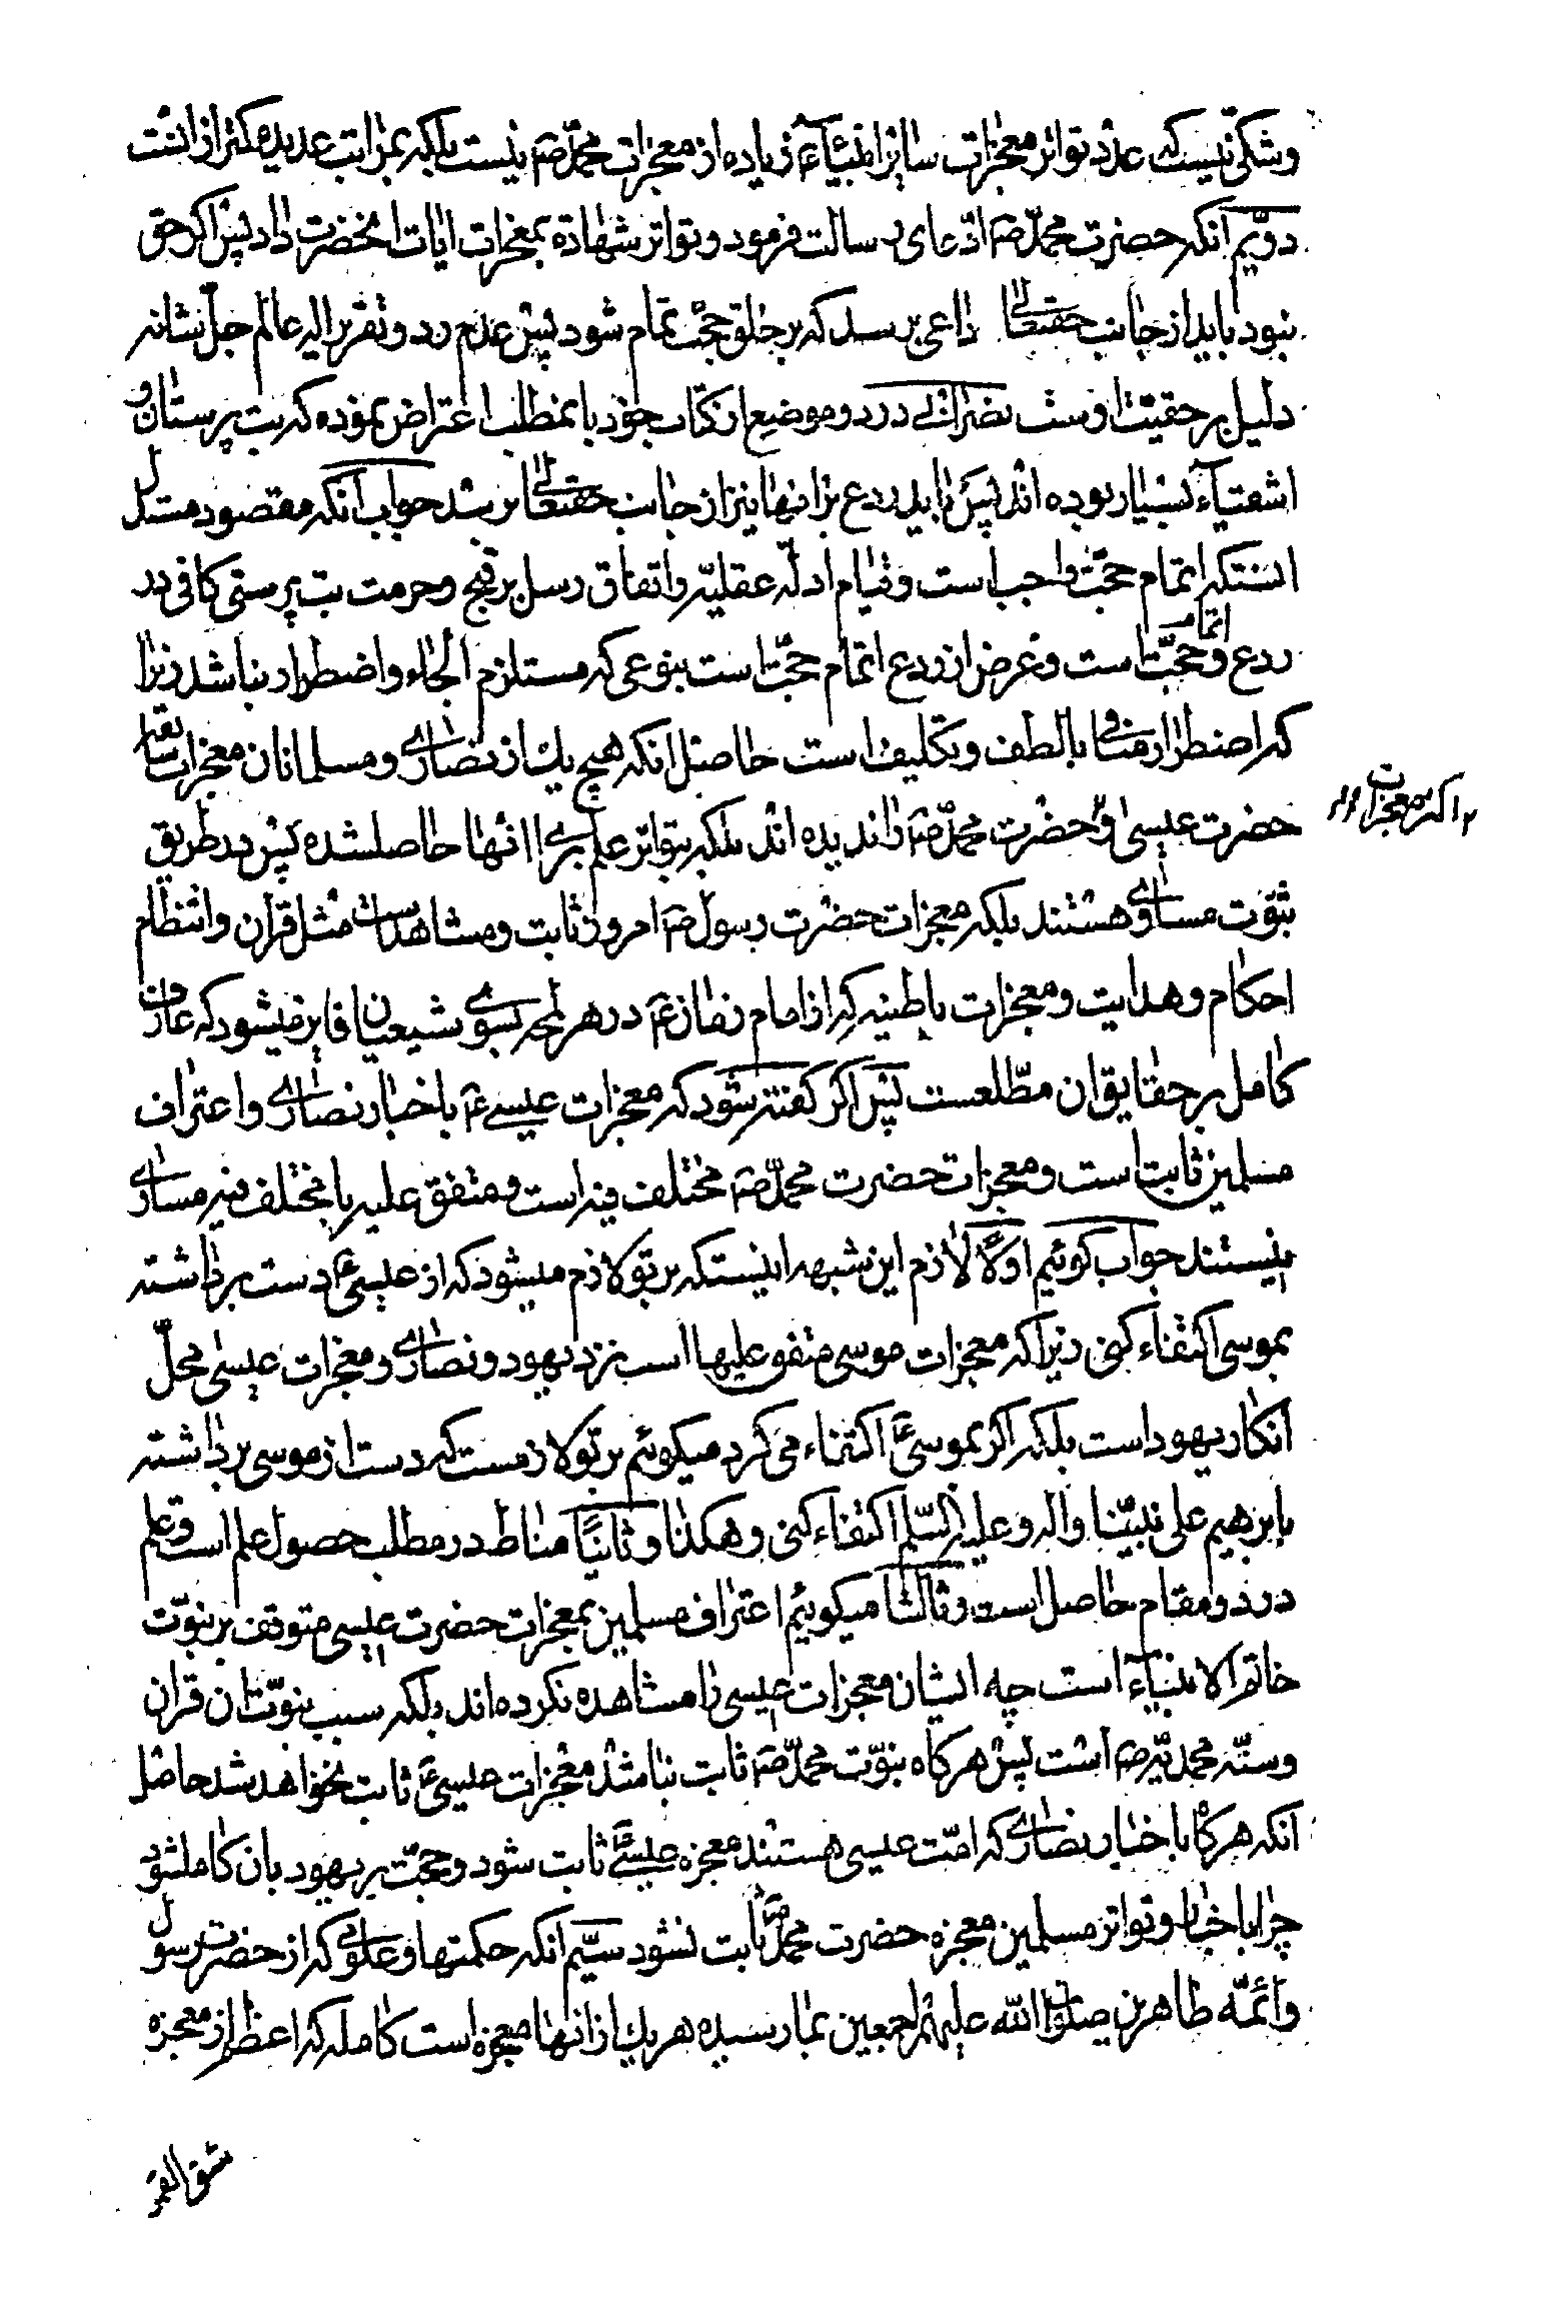 وشکی نیست که عدد تواتر معجزات سایر انبیاءَ زیاده از معجزات محمّد صَ نیست بلکه بمراتب عدیده کمتر از انست
دوّیم انکه حضرت محمّد صَ ادّعای رسالت فرمود وبتواتر شهاده بمعجزات ایات انحضرت داد پس اکر حق
نبود باید از جانب حقتعالی داعی برسد که بر خلق حجّت تمام شود پس عدم رد وتقریر اله عالم جلّ شانه
دلیل بر حقیّت اوست نصرانی در دو موضع از کتاب خود باینمطلب اعتراض نموده که بت پرستان و
اشقیاء بسیار بوده اند پس باید ردع برانها نیز از جانب حقتعالی برسد جواب انکه مقصود مستدل
اینستکه اتمام حجّت واجب است وقیام ادلّه عقلیّه واتفاق رسل بر قبح وحرمت بت پرستی کافی در
ردع و اتمام حجّت است وغرض از ردع اتمام حجّت است بنوعی که مستلزم الجاء واضطرار نباشد زیرا
که اضطرار منافی با لطف وتکلیف است حاصل انکه هیچ یک از نصاری ومسلمانان معجزات سابقه
حضرت عیسی و حضرت محمّد صَ را ندیده اند بلکه بتواتر علم برای انها حاصلشده پس در طریق
ثبوّت مساوی هستند بلکه معجزات حضرت رسول صَ امروز ثابت ومشاهد است مثل قران وانتظام
احکام وهدایت ومعجزات باطنیه که از امام زمان عَ در هر لمحه بسوی شیعیان فایز میشود که عارف
کامل بر حقایق ان مطّلعست پس اکر کفته شود که معجزات عیسی عَ باخبار نصاری واعتراف
مسلمین ثابت است ومعجزات حضرت محمّد صَ مختلف فیه است ومتفق علیه با مختلف فیه مساوی
نیستند جواب کوئیم اوّلاً لازم این شبهه اینستکه بر تو لازم میشود که از عیسی ع دست برداشته
بموسی اکتفاء کنی زیرا که معجزات موسی متفق علیها است نزد یهود ونصاری ومعجزات عیسی محلّ
انکار یهود است بلکه اکر بموسی عَ اکتفاء می کرد میکوئیم بر تو لازمست که دست از موسی برداشته
بابرهیم علی نبیّنا واله وعلیه السّلم اکتفاء کنی وهکذا وثانیًا مناط در مطلب حصول علم است وعلم
در دو مقام حاصل است وثالثا میکوئیم اعتراف مسلمین بمعجزات حضرت عیسی متوقف بر نبوّت
خاتم الانبیاء است چه ایشان معجزات عیسی را مشاهده نکرده اند بلکه سبب نبوّت ان قران
وسنّه محمدیّه صَ است پس هرکاه نبوّت محمّد صَ ثابت نباشد معجزات عیسی عَ ثابت نخواهد شد حاصل
انکه هرکاه باخبار نصاری که امّت عیسی هستند معجزه عیسی عَ ثابت شود وحجّت بر یهود بان کامل شود
چرا باخبار وتواتر مسلمین معجزه حضرت محمّد صَ ثابت نشود سیّم انکه حکمتها وعلومی که از حضرت رسول
وائمّه طاهرین صلوات الله علیهم اجمعین بما رسیده هر یک از انها معجزه است کامله که اعظم از معجزه
شق القمر